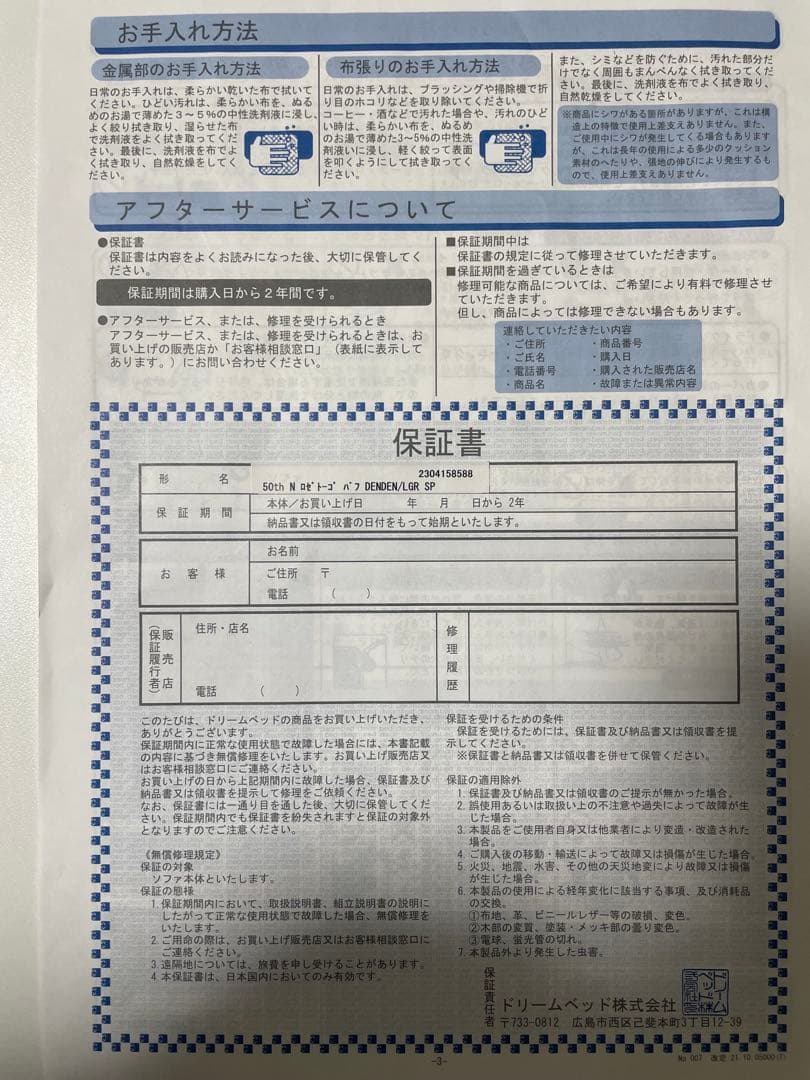 お手入れ方法
金属部のお手入れ方法
日常のお手入れは、柔らかい乾いた布で拭いて
ください。ひどい汚れは、柔らかい布を、ぬる
めのお湯で薄めた３～５％の中性洗剤液に浸し、
よく絞り拭き取り、湿らせた布
で洗剤液をよく拭き取ってくだ
さい。最後に、洗剤液を布でよ
く拭き取り、自然乾燥をしてく
ださい。
布張りのお手入れ方法
日常のお手入れは、ブラッシングや掃除機で折
り目のホコリなどを取り除いてください。
コーヒー・酒などで汚れた場合や、汚れのひど
い時は、柔らかい布を、ぬるめ
のお湯で薄めた3～5％の中性洗
剤液いに浸し、軽く絞って表面
を叩くようにして拭き取ってく
ださい。
また、シミなどを防ぐために、汚れた部分だ
けでなく周囲もまんべんなく拭き取ってくだ
さい。最後に、洗剤液を布でよく拭き取り、
自然乾燥をしてください。
※商品にシワがある箇所がありますが、これは構
造上の特徴で使用上差支えありません。また、
ご使用中にシワが発生してくる場合もあります
が、これは長年の使用による多少のクッション
素材のへたりや、張地の伸びにより発生するも
ので、使用上差支えありません。
アフターサービスについて
●保証書
保証書は内容をよくお読みになった後、大切に保管してく
ださい。
保証期間は購入日から２年間です。
●アフターサービス、または、修理を受けられるとき
アフターサービス、または、修理を受けられるときは、お
買い上げの販売店か「お客様相談窓口」（表紙に表示して
あります。）にお問い合わせください。
■保証期間中は
保証書の規定に従って修理させていただきます。
■保証期間を過ぎているときは
修理可能な商品については、ご希望により有料で修理させ
ていただきます。
但し、商品によっては修理できない場合もあります。
連絡していただきたい内容
・ご住所 ・商品番号
・ご氏名 ・購入日
・電話番号 ・購入された販売店名
・商品名 ・故障または異常内容
保証書
形名
2304158588
50th N ﾛｾﾞﾄｰｺﾞ ﾊﾟﾌ DENDEN/LGR SP
保証期間
本体／お買い上げ日 年 月 日から 2年
納品書又は領収書の日付をもって始期といたします。
お客様
お名前
ご住所 〒
電話 （ ）
販売店
（保証履行者）
住所・店名
電話 （ ）
修理履歴
このたびは、ドリームベッドの商品をお買い上げいただき、
ありがとうございます。
保証期間内に正常な使用状態で故障した場合には、本書記載
の内容に基づき無償修理をいたします。お買い上げ販売店又
はお客様相談窓口にご連絡ください。
お買い上げの日から上記期間内に故障した場合、保証書及び
納品書又は領収書を提示して修理をご依頼ください。
なお、保証書には一通り目を通した後、大切に保管してくだ
さい。保証期間内でも保証書を紛失されますと保証の対象外
となりますのでご注意ください。
《無償修理規定》
保証の対象
ソファ本体といたします。
保証の態様
1. 保証期間内において、取扱説明書、組立説明書の説明に
したがって正常な使用状態で故障した場合、無償修理を
いたします。
2. ご用命の際は、お買い上げ販売店又はお客様相談窓口に
ご連絡ください。
3. 遠隔地については、旅費を申し受けることがあります。
4. 本保証書は、日本国内においてのみ有効です。
保証を受けるための条件
保証を受けるためには、保証書及び納品書又は領収書を提
示してください。
※保証書と納品書又は領収書を併せて保管ください。
保証の適用除外
1. 保証書及び納品書又は領収書のご提示が無かった場合。
2. 誤使用あるいは取扱い上の不注意や過失によって故障が生
じた場合。
3. 本製品をご使用者自身又は他業者により変造・改造された
場合。
4. ご購入後の移動・輸送によって故障又は損傷が生じた場合。
5. 火災、地震、水害、その他の天災地変により故障又は損傷
が生じた場合。
6. 本製品の使用による経年変化に該当する事項、及び消耗品
の交換。
①布地、革、ビニールレザー等の破損、変色。
②木部の変質、塗装・メッキ部の曇り変色。
③電球、蛍光管の切れ。
7. 本製品外より発生した虫害。
保証責任者
ドリームベッド株式会社
〒733-0812 広島市西区己斐本町3丁目12-39
-3-
No 007 改定 21.10.05000(T)